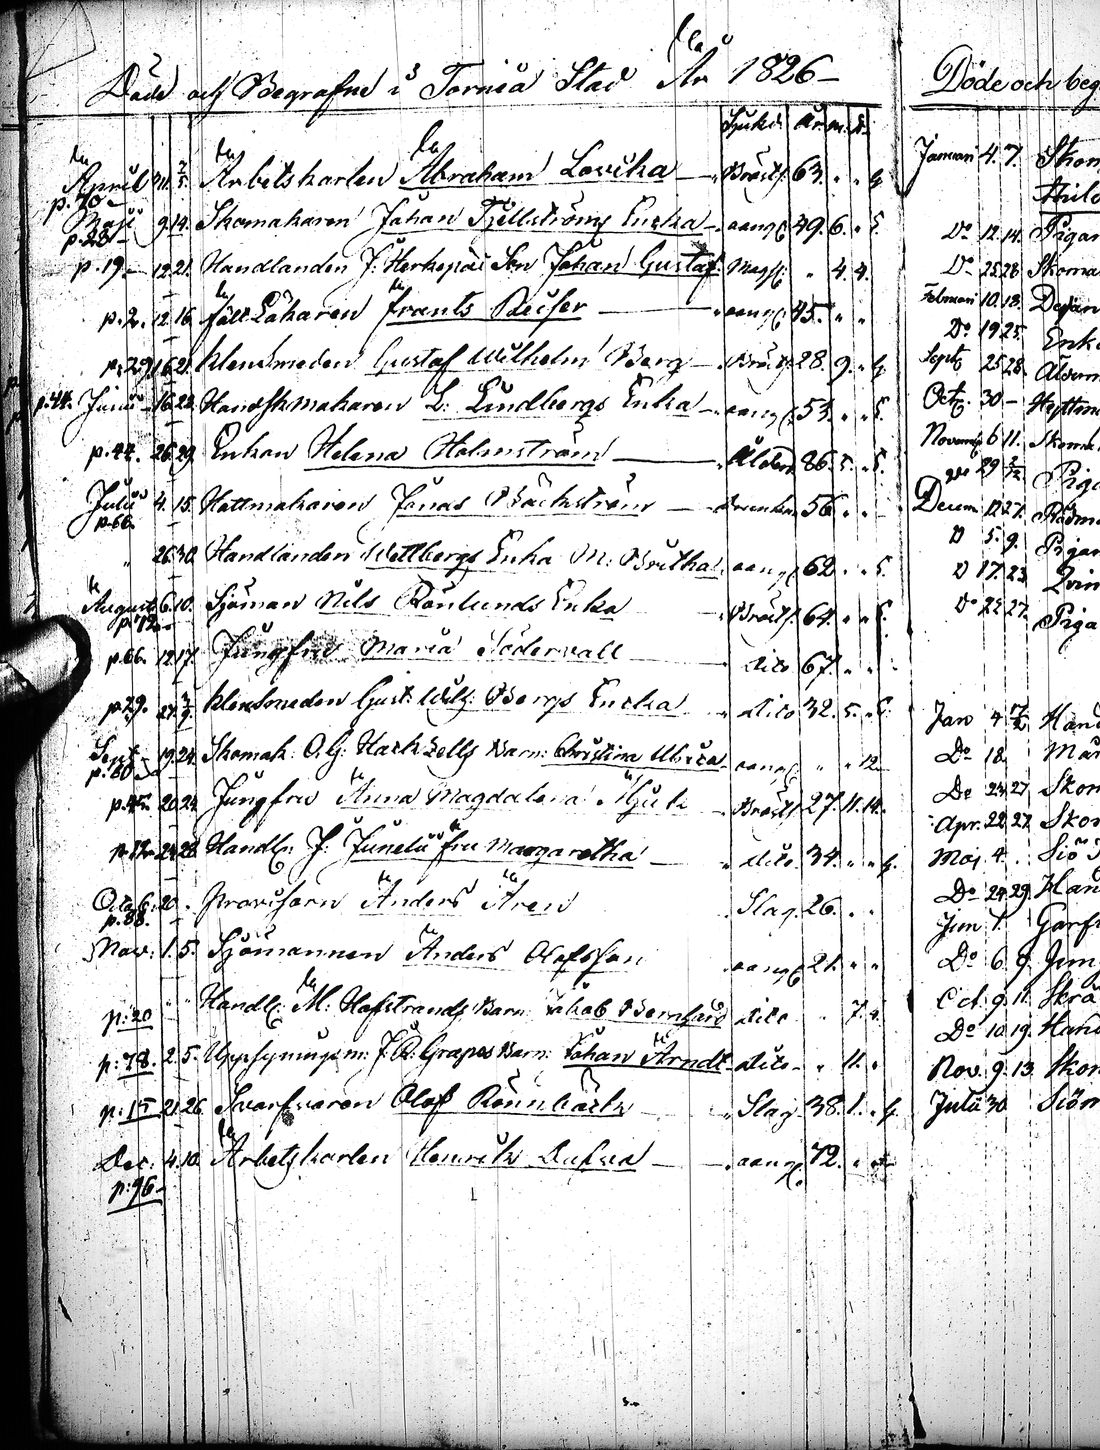 Döde och Begrafne i Torneå Stad År 1826
Sjukd. År. m. d.
April 30. 7/5. Arbetskarlen Abraham Lovika Bröstf. 63. " " g.
p. 70
Maji 9. 14. Skomakaren Johan Fjellströms Encka 49. 6. " S.
p. 28
p. 19. 12. 21. Handlanden J: Herkepæi Son Johan Gustaf Magsj. " 4. 4.
p. 2. 12. 16. fält Läkaren frants 45. " "
p. 29. 16. 21. klensmeden Gustaf Wilhelm Berg Bröstf. 28. 9. " g.
p. 44. Junii 16. 22. Handskmakaren L: Lindbergs Enka 53. " " S.
p. 44. 26. 29. Enkan Helena Holmström Ålderd. 86. 5. " S.
Julii 4. 15. Hattmakaren Jonas Bäckström 56. " "
p. 66.
" 26. 30. Handlanden Wettbergs Enka M: Britha 62. " " S.
Augusti 6. 10. Sjöman Nils Rönlunds Enka Bröstf. 64. " " S.
p. 72
p. 66. 12. 17. Jungfru Maria Södervall dito 67. " "
p. 29. 27. 3/9. klensmeden Gust: Wilh: Bergs Encka dito 32. 5. " S.
Sept. 19. 24. Skomak: O. G: Hackzells Barn: Christina Ulrica " " 12
p. 60
p. 45. 20. 24. Jungfru Anna Magdalena Bröstf. 27. 11. 14.
p. 72. 24. 28. Handl: J: Junelii fru Margaretha dito 34. " " g.
Octob. 6. 20. Provisorn Anders Åren Slag. 26. " "
p. 88.
Nov: 1. 5. Sjömannen Anders Olofsson 21. " "
p: 20 " " Handl: M: Hofstrands Barn Jakob Bernhard dito " 7. 2.
p: 78. 2. 5. Uppsyningsm: J. A: Grapes Barn: Johan Arndt dito " 11. "
p: 15 21. 26 Svarfvaren Olof Rönnbäck Slag 38. 1. " g.
Dec: 4. 10. Arbetskarlen Henrik Dufva 72. " "
p: 96
Döde och beg
Januari 4. 7. Skom
Do 12. 14. Pigan
Do 25. 28. Skoma
Februari 10. 18.
Do 19. 25. Enk
Sept. 25. 28.
Oct. 30 —
Novemb. 6. 11. Skom
29 3/12 Piga
Decem. 12. 27. Rådm
D 5. 9. Pigan
D 17. 23.
Do 22. 27. Piga
Jan 4. 7/2 Hand
Do 18.
Do 23. 27. Skom
Apr. 22. 27. Sko
Maj. 4. Siö
Do 24. 29. Han
Jun 1. Garfv
Do 6. 9. Jung
Oct. 9. 11. Skrä
Do 10. 19. Hand
Nov. 9. 13 Skom
Julii 30 Siöm